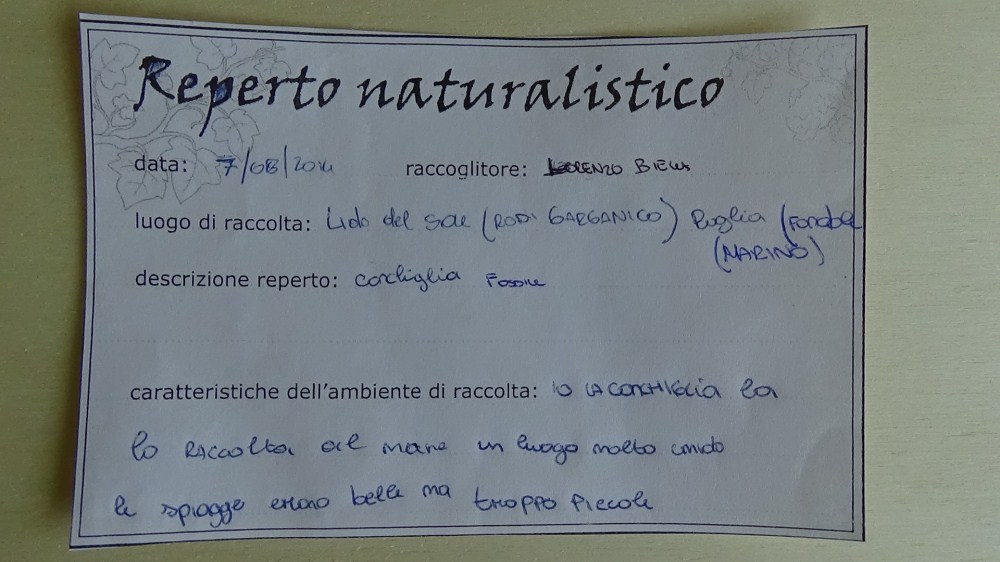 Reperto naturalistico
data: 7/08/2014 raccoglitore: LORENZO BIELLA
luogo di raccolta: Lido del Sole (RODI GARGANICO) Puglia (Fondale
(MARINO)
descrizione reperto: conchiglia Fossile
caratteristiche dell'ambiente di raccolta: IO LA CONCHIGLIA la
lo RACColta al mare un luogo molto umido
le spiagge erano belle ma troppo Piccole